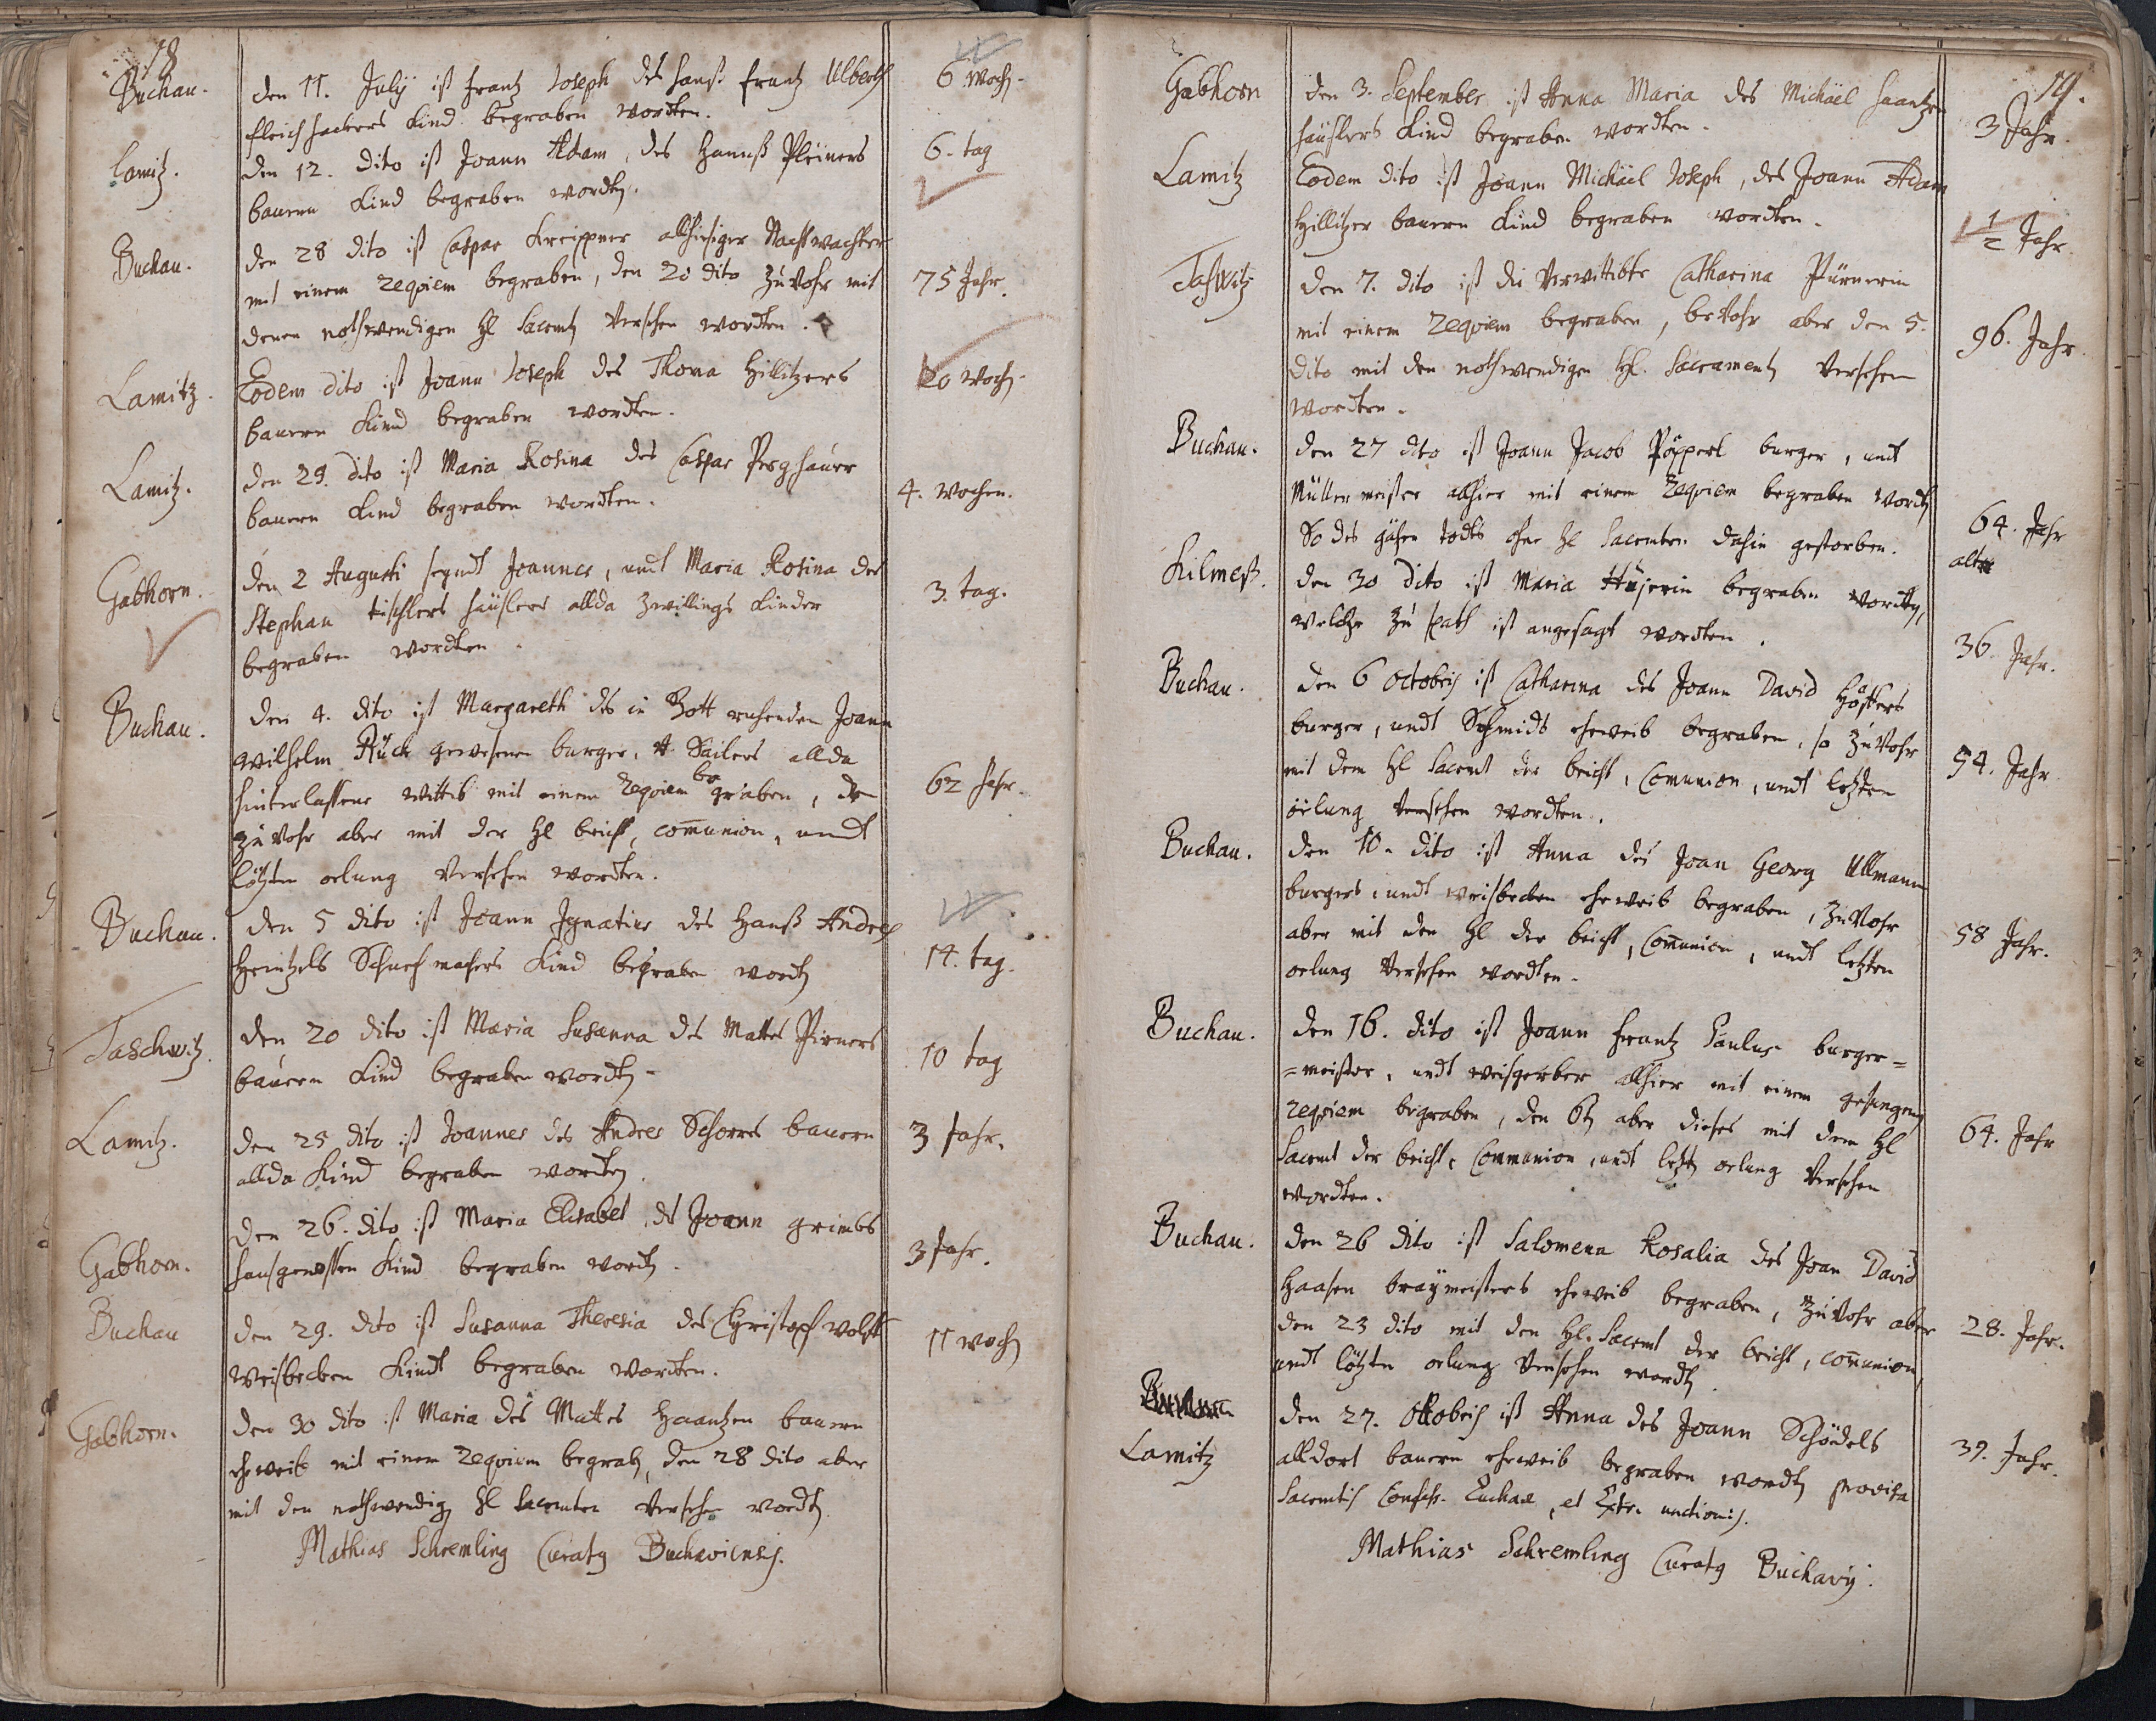 18
Buchau. den 11. Julÿ ist frantz Joseph des hanß frantz Ulberth 6 Woch
fleischhackers Kind begraben wordten.
Lamitz. den 12. dito ist Joann Adam, des Hannß Pleiners 6. tag
bauern Kind begraben wordten.
Buchau. den 28 dito ist Caspar Kreippner allhiesiger Nachtwachter
mit einem Requiem begraben, den 20 dito zuvohr mit 75 Jahr.
denen nothwendigen hl Sacramt versehen wordten.
Lamitz. Eodem dito ist Joann Joseph des Thoma Hillitzers 20 Woch
bauern Kind begraben wordten.
Lamitz. den 29. dito ist Maria Rosina des Caspar Perghauer
bauern Kind begraben wordten. 4. Wochen.
Gabhorn. den 2 Augusti seyndt Joannes, undt Maria Rosina des
Stephan tischlers häuslers allda zwillings Kinder 3. tag.
begraben wordten
Buchau. den 4. dito ist Margareth des in Gott ruhenden Joann
Wilhelm Rück gewesenen burger, Sailers allda
hinterlassene wittib mit einem Requiem begraben, 62 Jahr.
zuvohr aber mit der hl beicht, communion, undt
lötzten oelung versehen wordten.
Buchau. den 5 dito ist Joann Ignatius des Hanß Andres
Heintzels Schuchmachers Kind begraben wordten 14. tag.
Taschwitz. den 20 dito ist Maria Susanna des Mattes Pirners
bauern Kind begraben wordten 10 tag
Lamitz. den 25 dito ist Joannes des Andres Schorres bauern 3 Jahr.
allda Kind begraben wordten.
Gabhorn. den 26. dito ist Maria Elisabet des Joann grimbs
hausgenossen Kind begraben wordten. 3 Jahr.
Buchau den 29. dito ist Susanna Theresia des Christoph wolfs 11 woch
Weisbecken Kindt begraben wordten.
Gabhorn. den 30 dito ist Maria des Mattes Haantzen bauern
eheweib mit einem Requiem begraben, den 28 dito aber
mit den nothwendigen hl Sacramten versehen wordten.
Mathias Schremling Curatg Buchaviensis.
19.
Gabhorn den 3. September ist Anna Maria des Michäel haantzen
häuslers Kind begraben wordten. 3 Jahr
Lamitz Eodem dito ist Joann Michäel Joseph, des Joann Adam
Hillitzer bauern Kind begraben wordten. 1/2 Jahr.
Taschwitz den 7. dito ist die verwittibte Catharina Pürnerin
mit einem Requiem begraben, bevohr aber den 5. 96. Jahr
dito mit den nothwendigen hl. Sacrament versehen
wordten.
Buchau. den 27 dito ist Joann Jacob Pöpperl burger, undt
Müllermeister allhier mit einem Requiem begraben wordten
So des gähen todts ohne hl Sacramten dahin gestorben. 64. Jahr
alt
Kilmeß. den 30 dito ist Maria begraben wordten,
welche zu spath ist angesagt wordten. 36. Jahr.
Buchau. den 6 octobris ist Catharina des Joann David
burger, undt Schmidts eheweib begraben, so zuvohr
mit dem hl Sacramt der beicht, Communion, undt letzten 54. Jahr
öelung versehen wordten.
Buchau. den 10. dito ist Anna des Joan Georg Ullmann
burgers, undt weisbecken eheweib begraben, zuvohr
aber mit den hl der beicht, Communion, undt letzten 58 Jahr.
oelung versehen wordten.
Buchau. den 16. dito ist Joann frantz Paulus burger=
=meister, undt weisgerber allhier mit einem gesungenen
Requiem begraben, den 6ten aber dieses mit dem hl 64. Jahr
Sacramt der beicht, Communion, undt letzten oelung versehen
wordten.
Buchau. den 26 dito ist Salomena Rosalia des Joan David
Haasen braÿmeisters eheweib begraben, zuvohr aber
den 23 dito mit den hl. Sacramt der beicht, communion, 28. Jahr.
undt lötzten oelung versehen wordten
Lamitz den 27. octobris ist Anna des Joann Schödels
alldort bauern eheweib begraben wordten provisa 39. Jahr.
Sacramtis Confess. Euchae, et Extr. unctionis.
Mathias Schremling Curatg Buchavÿ.